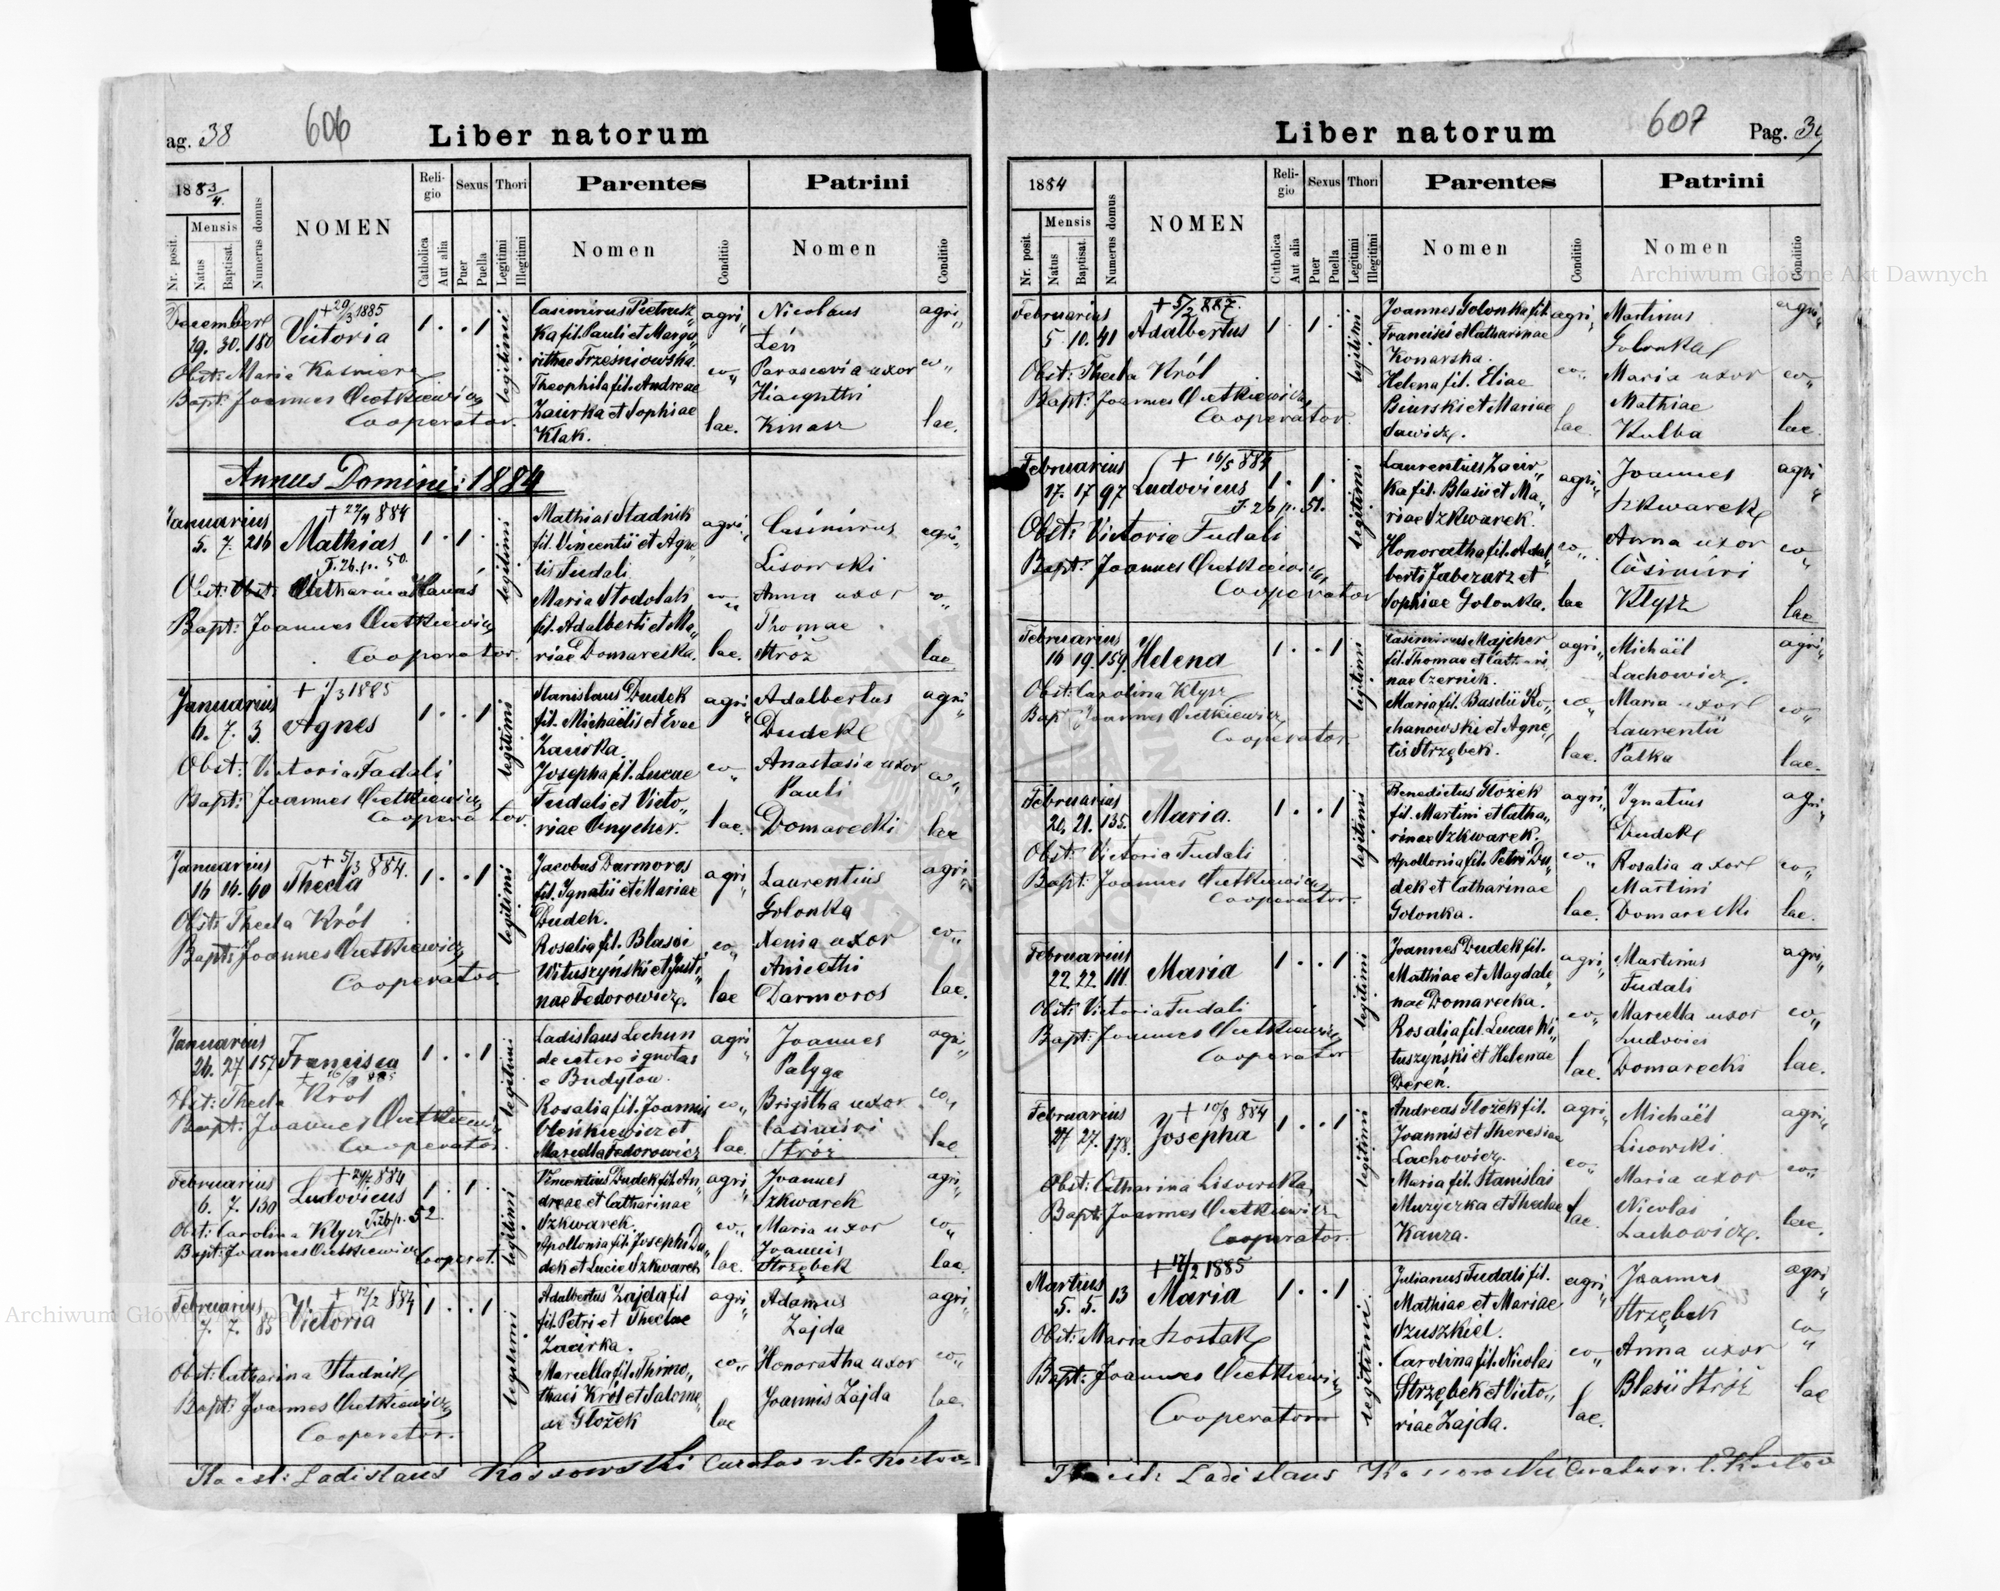 ag. 38
606
Liber natorum
1883/4.
Nr. posit.
Mensis
Natus
Baptisat.
Numerus domus
NOMEN
Reli-
gio
Catholica
Aut alia
Sexus
Puer
Puella
Thori
Legitimi
Illegitimi
Parentes
Nomen
Conditio
Patrini
Nomen
Conditio
December
29. 30. 180
+ 20/3 1885
Victoria
1 . . 1
legitimi
Obst: Maria
Bapt: Joannes
Cooperator.
Casimirus Pietrusz
ka fil. Pauli et Marga
rithae Trześniowska.
Theophila fil. Andreae
Zacirka et Sophiae
Kłak.
agri„
co„
lae.
Nicolaus
Leń
Parascevia uxor
Hiacynthi
agri„
co„
lae.
Annus Domini: 1884
Januarius
5. 7. 216
+ 22/4 884
Mathias
T. 26. p. 50.
1 . 1 .
legitimi
Obst: Obst: Catharina
Bapt: Joannes
Cooperator.
Mathias Stadnik
fil. Vincentii et Agne
tis Fudali
Maria Stodolak
fil. Adalberti et Ma„
riae Domareska.
agri„
co„
lae.
Casimirus
Lisowski
Anna uxor
Thomae
Stróż
agri„
co„
lae
Januarius
6. 7. 3.
+ 1/3 1885
Agnes
1 . . 1
legitimi
Obst: Victoria Fudali
Bapt: Joannes
Cooperator.
Stanislaus Dudek
fil. Michaëlis et Evae
Zacirka
Josepha fil. Lucae
Fudali et Victo„
riae Onycher.
agri„
co„
lae
Adalbertus
Dudek
Anastasia uxor
Pauli
Domarecki
agri„
co„
lae
Januarius
16 16. 60
+ 5/3 884.
Thecla
1 . . 1
legitimi
Obst: Thecla Król
Bapt: Joannes
Cooperator.
Jacobus Darmoros
fil. Ignatii et Mariae
Dudek.
Rosalia fil. Blasii
Wituszyński et Justi„
nae Fedorowicz.
agri„
co„
lae
Laurentius
Golonka
Xenia uxor
Anicethi
Darmoros
agri„
co„
lae.
Januarius
26. 27 157
Francisca
1 . . 1
legitimi
Obst: Thecla Król
Bapt: Joannes
Cooperator.
Ladislaus Lechun
de cetero ignotus
e Budyłow.
Rosalia fil. Joannis
Oleńkiewicz et
Mariella Fedorowicz
agri„
co„
lae.
Joannes
Pałyga
Brigitha uxor
Casimiri
Stróż
agri„
co„
lae.
Februarius
6. 7. 130
+ 24/7 884
Ludovicus
T. 26 p. 52
1 . 1 .
legitimi
Obst: Carolina Kłysz
Bapt: Joannes
Cooperat.
Vincentius Dudek fil. An„
dreae et Catharinae
Szkwarek.
Apollonia fil. Josephi Du„
dek et Lucie Szkwarek
agri„
co„
lae.
Joannes
Szkwarek
Maria uxor
Joannis
Strzębek
agri„
co„
lae.
Februarius
7. 7. 85
+ 12/2 884
Victoria
1 . . 1
legitimi
Obst: Catharina Stadnik
Bapt: Joannes
Cooperator.
Adalbertus Zajda fil
fil. Petri et Theclae
Zacirka.
Marcella fil. Thimo„
thaei Król et Salome„
ae Głożek
agri„
co„
lae
Adamus
Zajda
Honoratha uxor
Joannis Zajda
agri„
co„
lae.
Ita est: Ladislaus Kossowski Curatus
607
Liber natorum
Pag. 39
1884
Nr. posit.
Mensis
Natus
Baptisat.
Numerus domus
NOMEN
Reli-
gio
Catholica
Aut alia
Sexus
Puer
Puella
Thori
Legitimi
Illegitimi
Parentes
Nomen
Conditio
Patrini
Nomen
Conditio
Februarius
5. 10. 41
+ 5/2 887.
Adalbertus
1 . 1 .
legitimi
Obst: Thecla Król
Bapt: Joannes
Cooperator.
Joannes Golonka fil.
Francisci et Catharinae
Konarska.
Helena fil. Eliae
Biurski et Mariae
Sawicz.
agri„
co„
lae.
Martinus
Golonka
Maria uxor
Mathiae
Kulba
agri„
co„
lae.
Februarius
17. 17 97
+ 16/5 884
Ludovicus
T. 26 p. 51.
1 . 1 .
legitimi
Obst: Victoria Fudali
Bapt: Joannes
Cooperator
Laurentius Zacir„
ka fil. Blasii et Ma„
riae Szkwarek.
Honoratha fil. Adal
berti Jabczarz et
Sophiae Golonka.
agri„
co„
lae
Joannes
Szkwarek
Anna uxor
Casimiri
Kłysz
agri„
co„
lae
Februarius
16 19. 154.
Helena
1 . . 1
legitimi
Obst: Carolina Kłysz
Bapt: Joannes
Cooperator.
Casimirus Majcher
fil. Thomae et Cathari
nae Czernik.
Maria fil. Basilii Ko„
chanowski et Agne„
tis Strzębek.
agri„
co„
lae.
Michaël
Lachowicz.
Maria uxor
Laurentii
Pałka
agri„
co„
lae.
Februarius
20. 21. 135.
Maria.
1 . . 1
legitimi
Obst: Victoria Fudali
Bapt: Joannes
Cooperator.
Benedictus Głożek
fil. Martini et Catha„
rinae Szkwarek.
Apollonia fil. Petri Du„
dek et Catharinae
Golonka.
agri„
co„
lae.
Ignatius
Dudek
Rosalia uxor
Martini
Domarecki
agri„
co„
lae.
Februarius
22. 22. 111.
Maria
1 . . 1
legitimi
Obst: Victoria Fudali
Bapt: Joannes
Cooperator
Joannes Dudek fil.
Mathiae et Magdale
nae Domarecka.
Rosalia fil. Lucae Wi„
tuszyński et Helenae
Dereń.
agri„
co„
lae.
Martinus
Fudali
Marcella uxor
Ludovici
Domarecki
agri„
co„
lae.
Februarius
27 27. 178.
+ 10/8 884
Josepha
1 . . 1
legitimi
Obst: Catharina Lisowska,
Bapt: Joannes
Cooperator.
Andreas Głożek fil.
Joannis et Theresiae
Lachowicz.
Maria fil. Stanislai
Muzyczka et Theclae
Kanza.
agri„
co„
lae.
Michaël
Lisowski
Maria uxor
Nicolai
Lachowicz.
agri„
co„
lae.
Martius
5. 5. 13
+ 17/2 1885
Maria
1 . . 1
legitimi.
Obst: Maria Kostak
Bapt: Joannes
Cooperator
Julianus Fudali fil.
Mathiae et Mariae
Szuszkiel.
Carolina fil. Nicolai
Strzębek et Victo„
riae Zajda.
agri„
co„
lae.
Joannes
Strzębek
Anna uxor
Blasii Stróż
agri„
co„
lae
Ita est: Ladislaus Kossowski Curatus
Archiwum Główne Akt Dawnych
Archiwum Główne Akt Dawnych